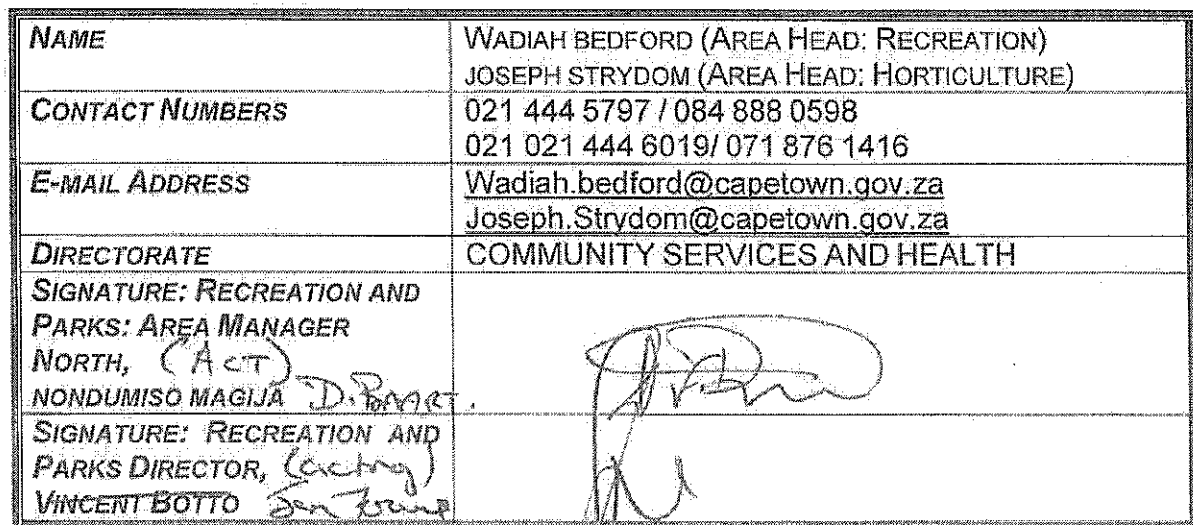 NAME
WADIAH BEDFORD (AREA HEAD: RECREATION)
JOSEPH STRYDOM (AREA HEAD: HORTICULTURE)
CONTACT NUMBERS
021 444 5797 / 084 888 0598
021 021 444 6019/ 071 876 1416
E-MAIL ADDRESS
Wadiah.bedford@capetown.gov.za
Joseph.Strydom@capetown.gov.za
DIRECTORATE
COMMUNITY SERVICES AND HEALTH
SIGNATURE: RECREATION AND
PARKS: AREA MANAGER
NORTH, (ACT)
NONDUMISO MAGIJA D.
SIGNATURE: RECREATION AND
PARKS DIRECTOR, (acting)
VINCENT BOTTO